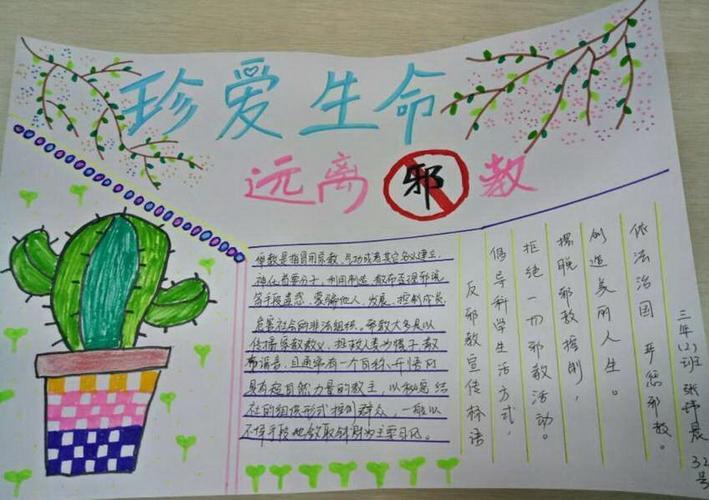 珍爱生命
远离邪教
邪教是指冒用宗教、气功或者其它名义建立、
神化首要分子,利用制造、散布歪理邪说
等手段蛊惑、蒙骗他人,发展、控制成员
危害社会的非法组织。邪教大多是以
传播宗教教义、拯救人类为幌子,散
布谣言,且通常有一个自称、开悟的
具有超自然力量的教主,以秘密结
社的组织形式控制群众,一般以
不择手段地敛取钱财为主要目的。
反邪教宣传标语
倡导科学生活方式,
拒绝一切邪教活动。
摆脱邪教控制,
创造美丽人生。
依法治国 严惩邪教。
三年(2)班 张炜晨 32号